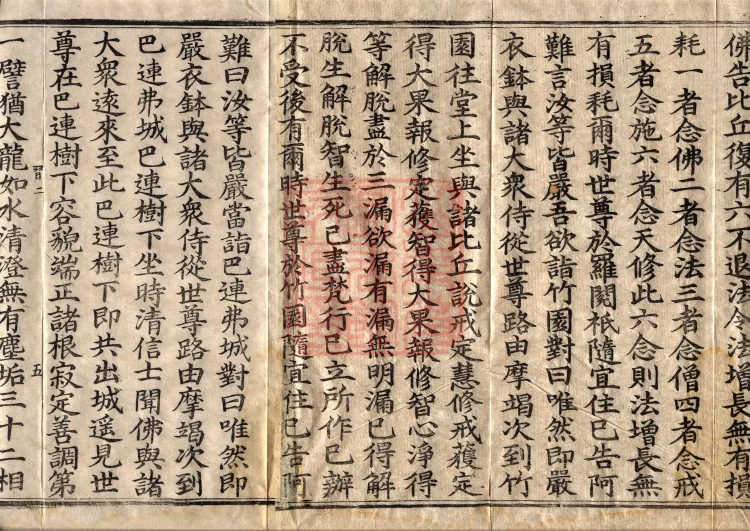 佛告比丘復有六不退法令法增長無有損
耗一者念佛二者念法三者念僧四者念戒
五者念施六者念天修此六念則法增長無
有損耗爾時世尊於羅閱祇隨宜住已告阿
難言汝等皆嚴吾欲詣竹園對曰唯然即嚴
衣鉢與諸大衆侍從世尊路由摩竭次到竹
園往堂上坐與諸比丘說戒定慧修戒獲定
得大果報修定獲智得大果報修智心淨得
等解脫盡於三漏欲漏有漏無明漏已得解
脫生解脫智生死已盡梵行已立所作已辦
不受後有爾時世尊於竹園隨宜住已告阿
難曰汝等皆嚴當詣巴連弗城對曰唯然即
嚴衣鉢與諸大衆侍從世尊路由摩竭次到
巴連弗城巴連樹下坐時清信士聞佛與諸
大衆遠來至此巴連樹下即共出城遥見世
尊在巴連樹下容貌端正諸根寂定善調第
習二 五
一譬猶大龍如水清澄無有塵垢三十二相